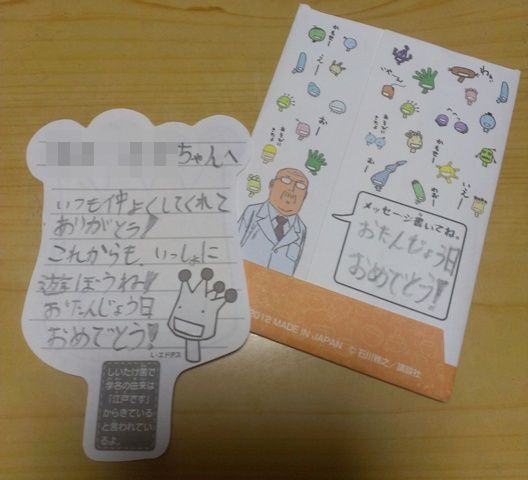 ちゃんへ
いつも仲よくしてくれて
ありがとう!
これからも、いっしょに
遊ぼうね!!
おたんじょう日
おめでとう!
L・エドデス
しいたけ菌で
学名の由来は
「江戸です」
からきている
と言われてい
るよ。
かもせー
えー
おー
わぁ
かもせー
いえー
おー
メッセージ書いてね。
おたんじょう日
おめでとう!
2012 MADE IN JAPAN © 石川雅之/講談社